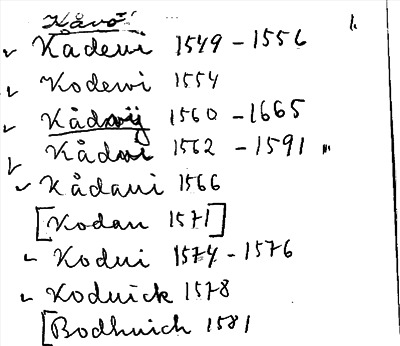 Kåvö 1.
✓ Kådewi 1549 - 1556
✓ Kodewi 1554
✓ Kådwij 1560 - 1665
✓ Kådwi 1562 - 1591 "
✓ Kådaui 1566
[Kodan 1571]
✓ Kodui 1574 - 1576
✓ Koduick 1578
[Bodhuich 1581